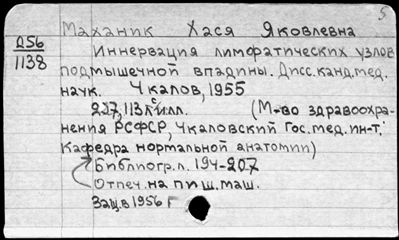 5
Маханик Хася Яковлевна
256
1138
Иннервация лимфатических узлов
подмышечной впадины. Дисс. канд. мед.
наук. Чкалов, 1955
227, 113 с илл. (М-во здравоохра-
нения РСФСР, Чкаловский Гос. мед. ин-т.
Кафедра нормальной анатомии)
Библиогр. л. 194-207
Отпеч. на пиш. маш.
Защ. в 1956 г